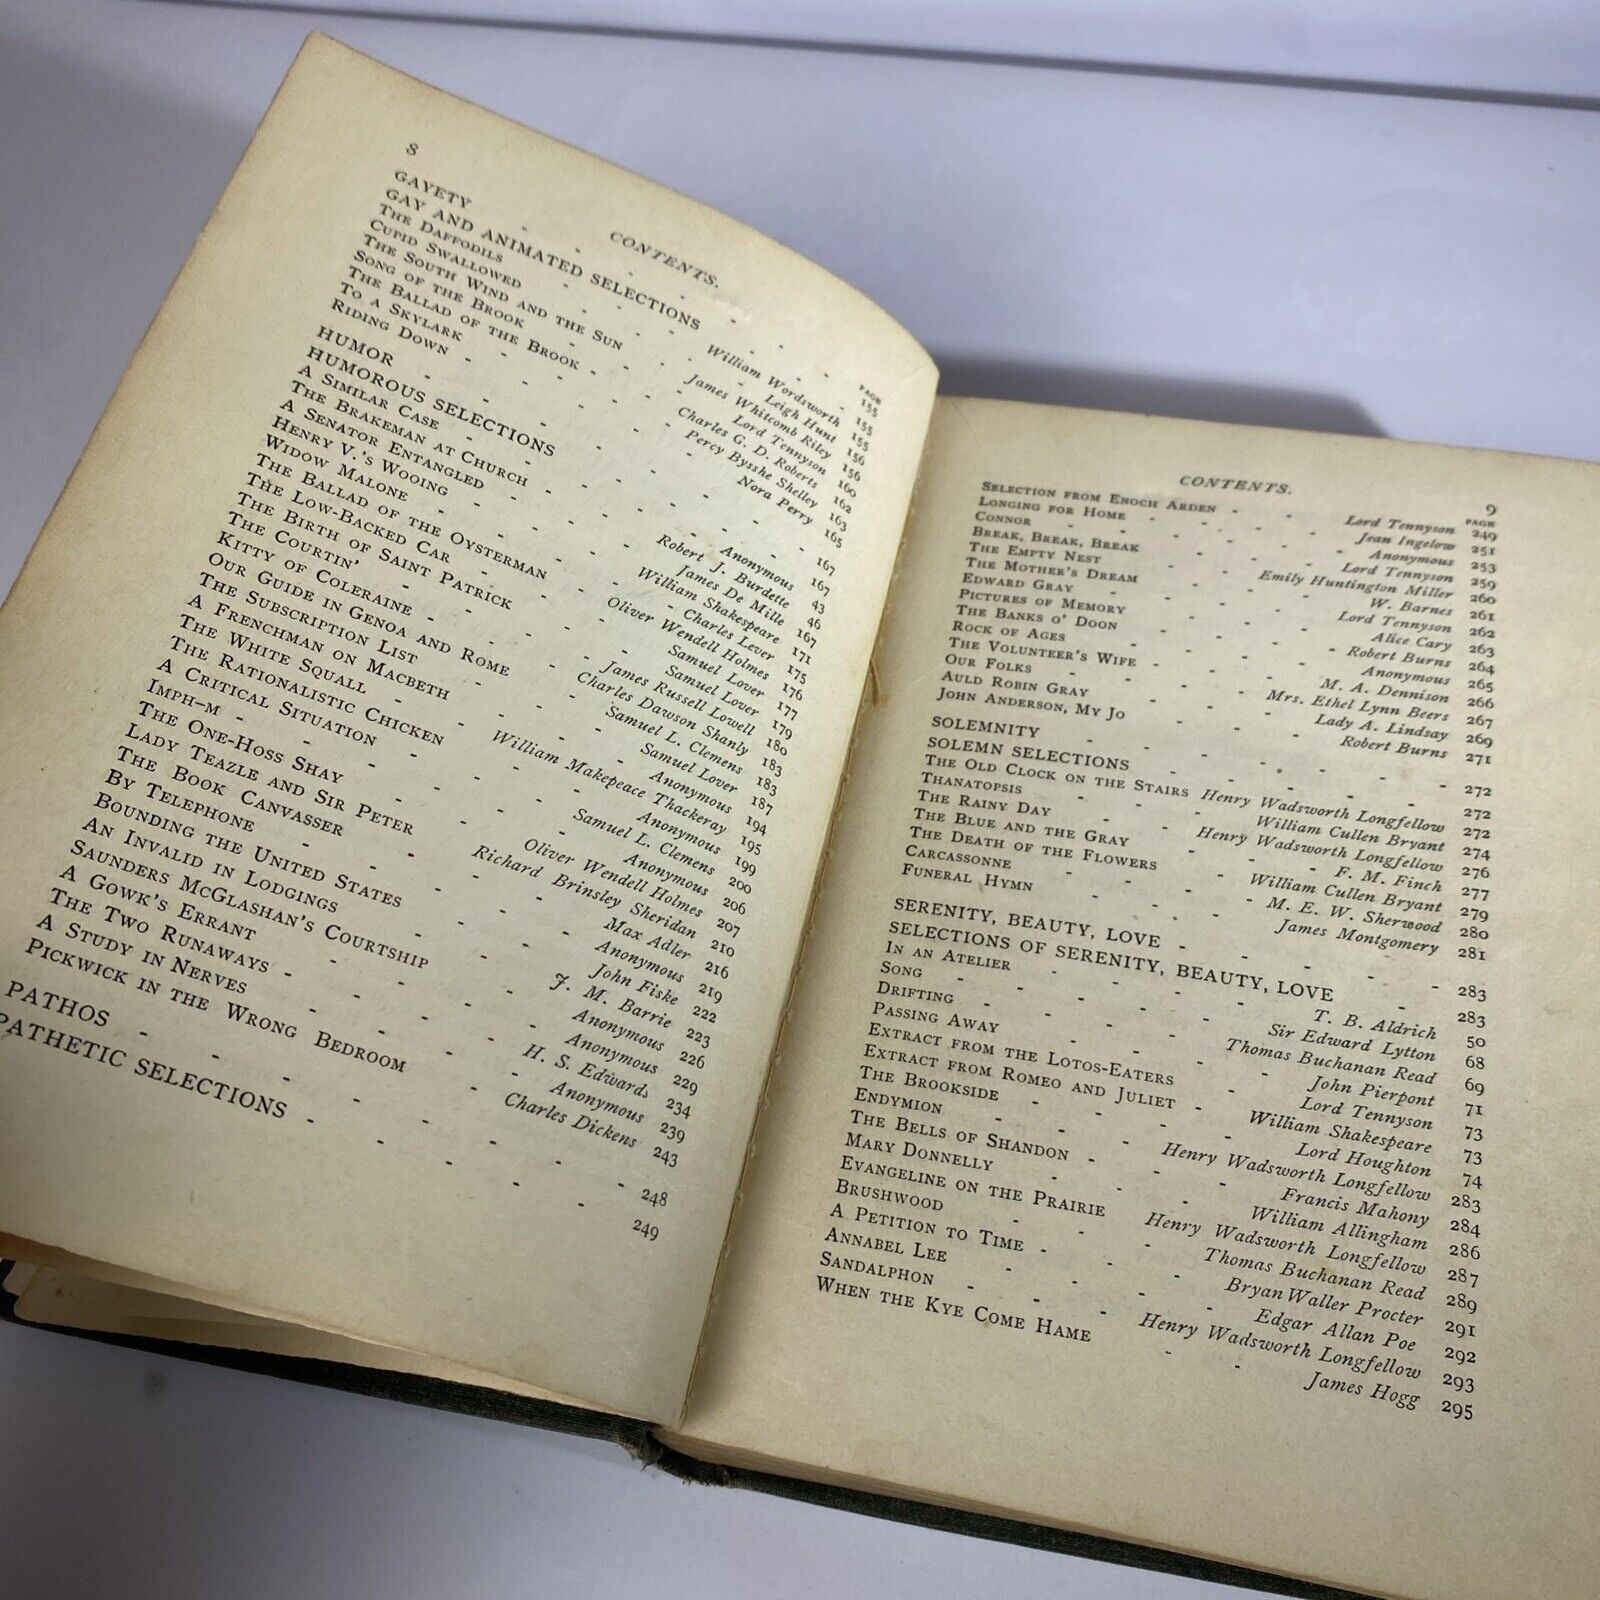 8 CONTENTS.
PAGE
GAYETY - - - - 155
GAY AND ANIMATED SELECTIONS - - 155
THE DAFFODILS - - - William Wordsworth 155
CUPID SWALLOWED - - - Leigh Hunt 156
THE SOUTH WIND AND THE SUN - James Whitcomb Riley 156
SONG OF THE BROOK - - - Lord Tennyson 160
THE BALLAD OF THE BROOK - - Charles G. D. Roberts 162
TO A SKYLARK - - - Percy Bysshe Shelley 163
RIDING DOWN - - - Nora Perry 165
HUMOR - - - - 167
HUMOROUS SELECTIONS - - - 167
A SIMILAR CASE - - - Anonymous 43
THE BRAKEMAN AT CHURCH - - Robert J. Burdette 46
A SENATOR ENTANGLED - - James De Mille 167
HENRY V.'S WOOING - - William Shakespeare 171
WIDOW MALONE - - - Charles Lever 175
THE BALLAD OF THE OYSTERMAN - Oliver Wendell Holmes 176
THE LOW-BACKED CAR - - Samuel Lover 177
THE BIRTH OF SAINT PATRICK - - Samuel Lover 179
THE COURTIN' - - - James Russell Lowell 180
KITTY OF COLERAINE - - Charles Dawson Shanly 183
OUR GUIDE IN GENOA AND ROME - Samuel L. Clemens 183
THE SUBSCRIPTION LIST - - Samuel Lover 187
A FRENCHMAN ON MACBETH - - Anonymous 194
THE WHITE SQUALL - William Makepeace Thackeray 195
THE RATIONALISTIC CHICKEN - - Anonymous 199
A CRITICAL SITUATION - - Samuel L. Clemens 200
IMPH-M - - - Anonymous 206
THE ONE-HOSS SHAY - - Oliver Wendell Holmes 207
LADY TEAZLE AND SIR PETER - Richard Brinsley Sheridan 210
THE BOOK CANVASSER - - Max Adler 216
BY TELEPHONE - - - Anonymous 219
BOUNDING THE UNITED STATES - - John Fiske 222
AN INVALID IN LODGINGS - - J. M. Barrie 223
SAUNDERS MCGLASHAN'S COURTSHIP - Anonymous 226
A GOWK'S ERRANT - - - Anonymous 229
THE TWO RUNAWAYS - - - H. S. Edwards 234
A STUDY IN NERVES - - - Anonymous 239
PICKWICK IN THE WRONG BEDROOM - Charles Dickens 243
PATHOS - - - - 248
PATHETIC SELECTIONS - - - 249
CONTENTS. 9
PAGE
SELECTION FROM ENOCH ARDEN - - Lord Tennyson 249
LONGING FOR HOME - - - Jean Ingelow 251
CONNOR - - - Anonymous 253
BREAK, BREAK, BREAK - - Lord Tennyson 259
THE EMPTY NEST - - Emily Huntington Miller 260
THE MOTHER'S DREAM - - W. Barnes 261
EDWARD GRAY - - - Lord Tennyson 262
PICTURES OF MEMORY - - Alice Cary 263
THE BANKS O' DOON - - Robert Burns 264
ROCK OF AGES - - - Anonymous 265
THE VOLUNTEER'S WIFE - - M. A. Dennison 266
OUR FOLKS - - - Mrs. Ethel Lynn Beers 267
AULD ROBIN GRAY - - Lady A. Lindsay 269
JOHN ANDERSON, MY JO - - Robert Burns 271
SOLEMNITY - - - - 272
SOLEMN SELECTIONS - - - 272
THE OLD CLOCK ON THE STAIRS Henry Wadsworth Longfellow 272
THANATOPSIS - - - William Cullen Bryant 274
THE RAINY DAY - - Henry Wadsworth Longfellow 276
THE BLUE AND THE GRAY - - F. M. Finch 277
THE DEATH OF THE FLOWERS - William Cullen Bryant 279
CARCASSONNE - - - M. E. W. Sherwood 280
FUNERAL HYMN - - - James Montgomery 281
SERENITY, BEAUTY, LOVE - - - 283
SELECTIONS OF SERENITY, BEAUTY, LOVE - 283
IN AN ATELIER - - - T. B. Aldrich 50
SONG - - - Sir Edward Lytton 68
DRIFTING - - - Thomas Buchanan Read 69
PASSING AWAY - - - John Pierpont 71
EXTRACT FROM THE LOTOS-EATERS - Lord Tennyson 73
EXTRACT FROM ROMEO AND JULIET - William Shakespeare 73
THE BROOKSIDE - - - Lord Houghton 74
ENDYMION - - Henry Wadsworth Longfellow 283
THE BELLS OF SHANDON - - Francis Mahony 284
MARY DONNELLY - - - William Allingham 286
EVANGELINE ON THE PRAIRIE Henry Wadsworth Longfellow 287
BRUSHWOOD - - - Thomas Buchanan Read 289
A PETITION TO TIME - - Bryan Waller Procter 291
ANNABEL LEE - - - Edgar Allan Poe 292
SANDALPHON - - - Henry Wadsworth Longfellow 293
WHEN THE KYE COME HAME - - James Hogg 295